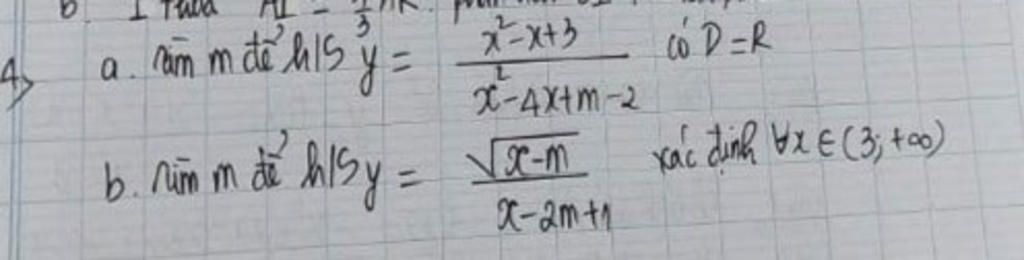 4) a. Tìm m để h/s y = \frac{x^2-x+3}{x^2-4x+m-2} có D=R
b. Tìm m để h/s y = \frac{\sqrt{x-m}}{x-2m+1} xác định ∀x∈(3;+∞)